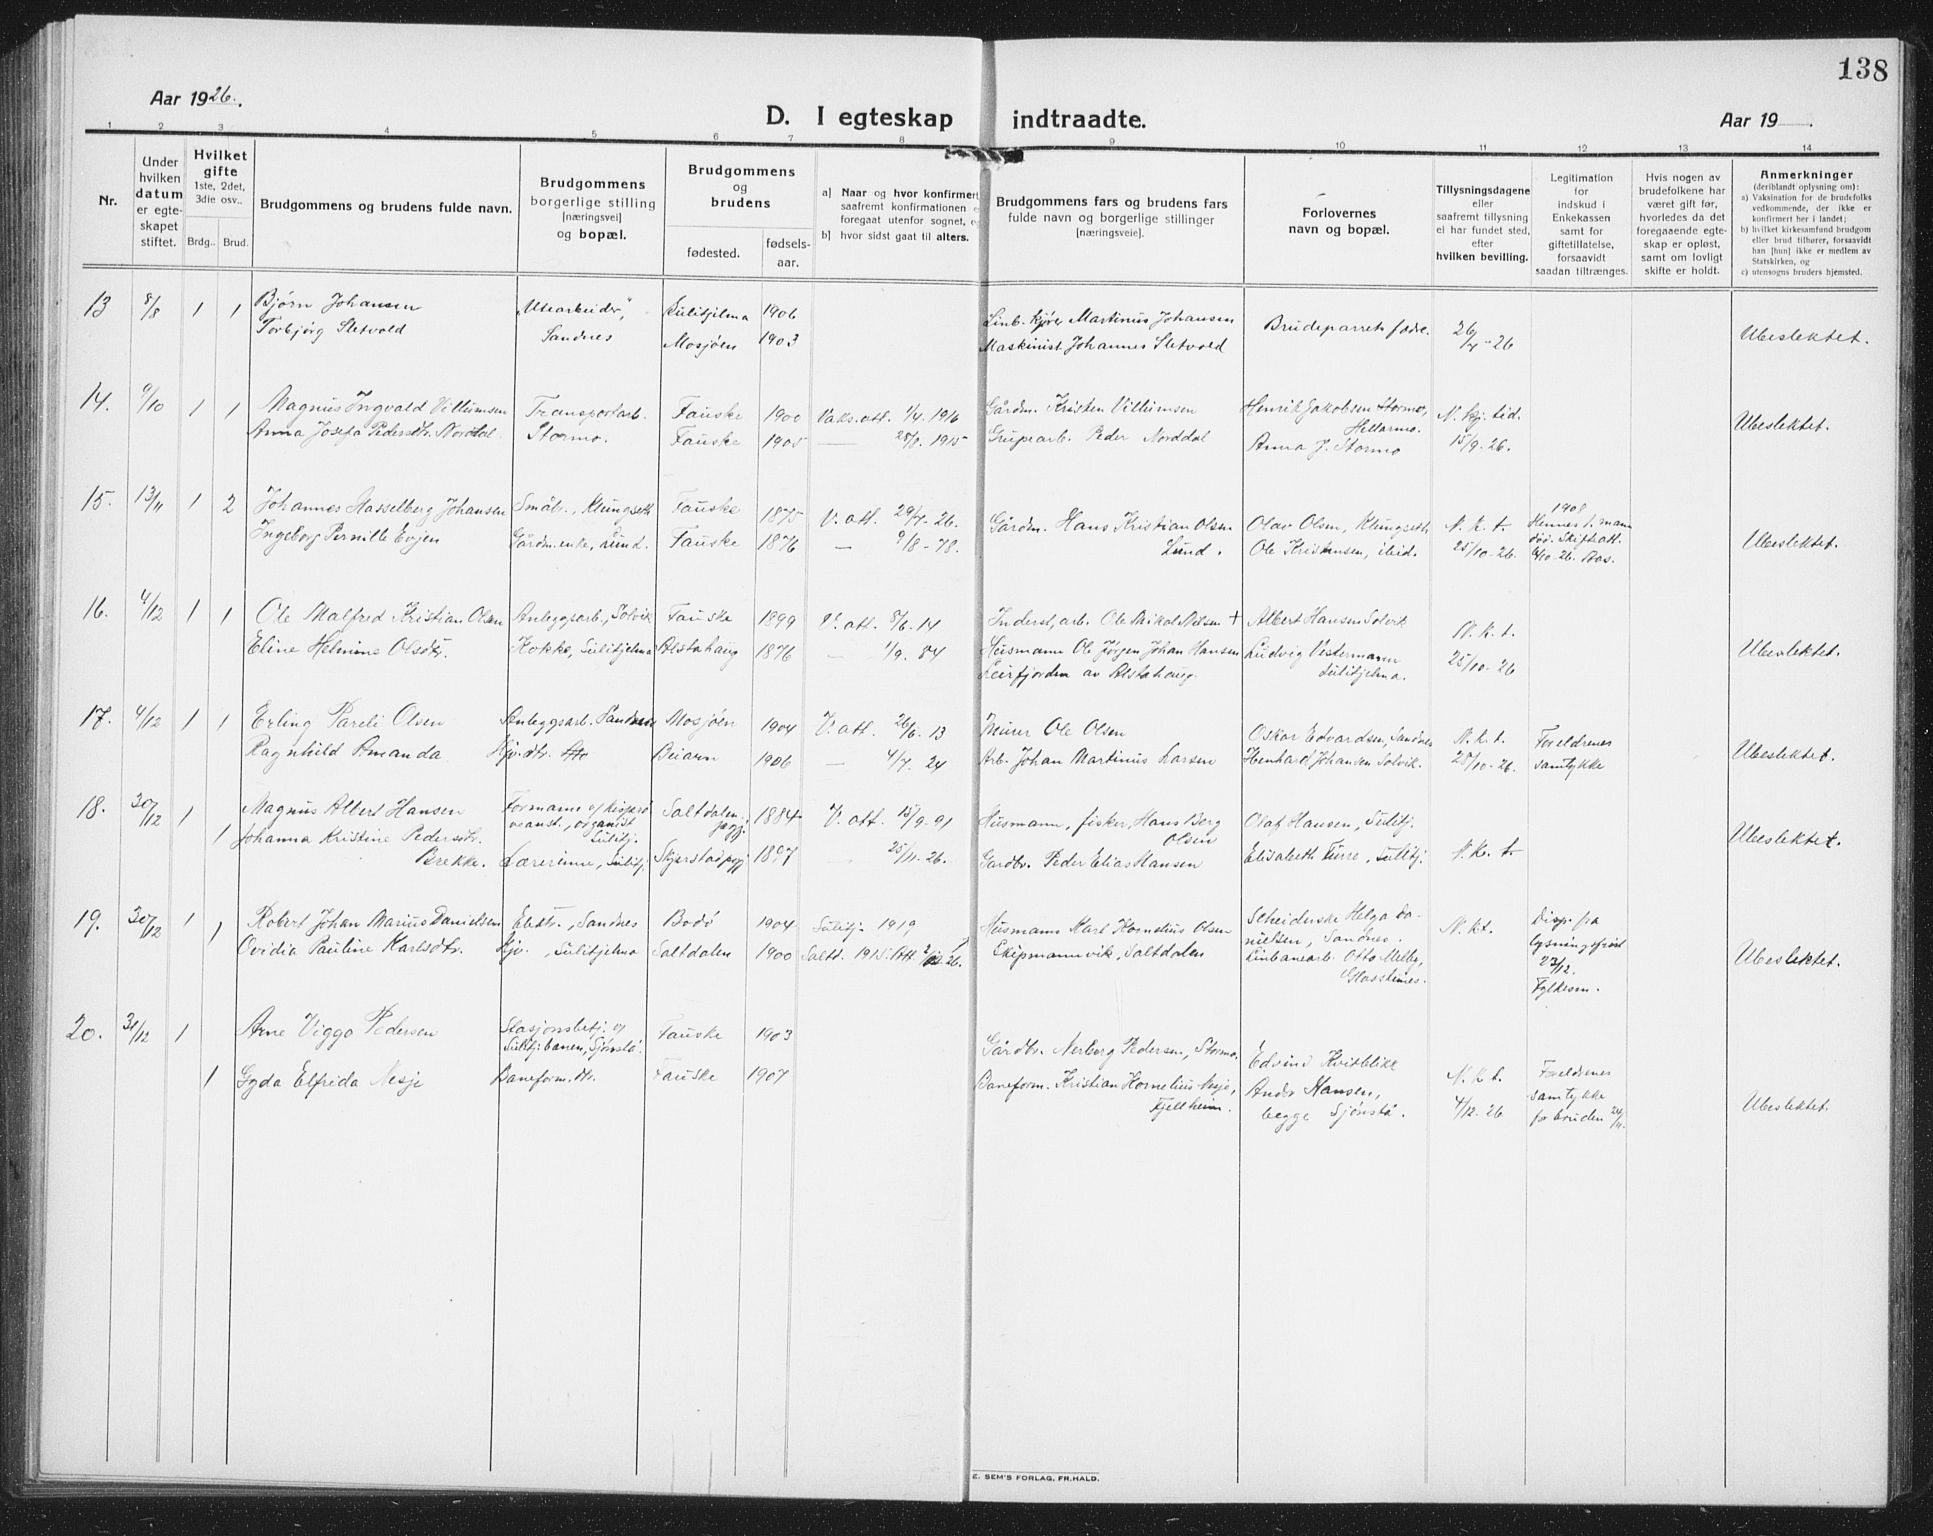 138
Aar 1926.
D. I egteskap indtraadte.
Aar 19 .
1 2 3 4 5 6 7 8 9 10 11 12 13 14
Nr.
Under hvilken datum er egteskapet stiftet.
Hvilket gifte 1ste, 2det, 3die osv..
Brdg.. Brud.
Brudgommens og brudens fulde navn.
Brudgommens borgerlige stilling [næringsvei] og bopæl.
Brudgommens og brudens
fødested.
fødselsaar.
a) Naar og hvor konfirmert
saafremt konfirmationen e
foregaat utenfor sognet, og
b) hvor sidst gaat til alters.
Brudgommens fars og brudens fars
fulde navn og borgerlige stillinger
[næringsveie].
Forlovernes
navn og bopæl.
Tillysningsdagene
eller
saafremt tillysning
ei har fundet sted,
efter
hvilken bevilling.
Legitimation
for
indskud i
Enkekassen
samt for
giftetillatelse,
forsaavidt
saadan tiltrænges.
Hvis nogen av
brudefolkene har
været gift før,
hvorledes da det
foregaaende egte-
skap er opløst,
samt om lovligt
skifte er holdt.
Anmerkninger
(deriblandt oplysning om):
a) Vaksination for de brudefolks
vedkommende, der ikke er
konfirmert her i landet;
b) hvilket kirkesamfund brudgom
eller brud tilhører, forsaavidt
han [hun] ikke er medlem av
Statskirken, og
c) utensogns bruders hjemsted.
13 8/8 1 1 Bjørn Johansen "Utearbeider", Sulitjelma 1906 Linb. kjører Martinus Johansen Brudeparrets fædre. 26/7-26 Ubeslektet.
Torbjørg Sletvold Sandnes Mosjøen 1903 Maskinist Johannes Sletvold
14. 9/10 1 1 Magnus Ingvald Villumsen Transportarb. Fauske 1900 Vaks. att. 1/4 1916 Gårdm. Kristen Villumsen Henrik Jakobsen Stormo, Hellarmo. N. kj. tid. Ubeslektet.
Anna Josefa Pedersdtr. Norddal. Stormo. Fauske 1905 — 28/8 1915 Grupearb. Peder Norddal Anna J. Stormo 15/9-26.
15. 13/11 1 2 Johannes Hasselberg Johansen Småbr., Klungseth Fauske 1875 V. att. 29/7-26. Gårdm. Hans Kristian Olsen Lund. Olav Olsen, Klungseth N. k. t. 1908 Hennes 1. mann
Ingeborg Pernille Evjen Gårdm.enke, Lund. Fauske 1876 — 9/8-78. Ole Kristensen, ibid. 25/10-26. død. Skifteatt. Ubeslektet.
16. 4/12 1 1 Ole Malfred Kristian Olsen Anleggsarb., Solvik Fauske 1899 V. att. 8/6-14 Inderst, arb. Ole Mikal Nilsen + Albert Hansen Solvik N. k. t.
Eline Helmine Olsdtr. Kokke, Sulitjelma Alstahaug 1876 — 1/9. 84 Husmann Ole Jørgen Johan Hansen Ludvig Vestermann 25/10-26 Ubeslektet.
Leirfjorden av Alstahaug. Sulitjelma.
17. 4/12 1 1 Erling Pareli Olsen Anleggsarb. Sandnes Mosjøen 1904 V. att. 26/6. 13 Murer Ole Olsen Oskar Edvardsen, Sandnes N. k. t. Foreldrenes
Ragnhild Amanda Beiarn 1906 — 4/7. 24 Arb. Johan Martinus Larsen Henhard Johansen Solvik. 25/10-26. samtykke Ubeslektet.
18. 30/12 1 1 Magnus Albert Hansen Formann og Saltdalen pgj. 1884 V. att. 15/9-91 Husmann, fisker, Hans Berg Olsen Olaf Hansen, Sulitj.
Johanna Kristine Pedersdtr. organist Sulitj. Ubeslektet.
Brekke. Lærerinne, Sulitj. Skjerstad pgj 1897 — 25/11. 26. Gardbr. Peder Elias Hansen Elisabeth Furre, Sulitj. N. k. t.
19. 30/12 1 1 Robert Johan Marius Danielsen Elektr., Sandnes Bodø 1904 Sulitj. 1919 Husmann Karl Kornelius Olsen Helga Danielsen, Sandnes. N. k. t. Disp. fra
Ovidia Pauline Karlsdtr. Kjv., Sulitjelma Saltdalen 1900 Saltd. 1915. Skipmannvik, Saltdalen Linbanearb. Otto Melby, Glasstunes. lysningsfrist Ubeslektet.
23/12.
Fylkesm.
20. 31/12 1 Arne Viggo Pedersen Stasjonsbetj. v/ Sulitj.banen, Sjønstå. Fauske 1903 Gårdbr. Nerberg Pedersen, Stormo. Edvind Kvitblikk
1 Gyda Elfrida Nesje Baneform.dtr. Fauske 1907 Baneform. Kristian Kornelius Nesje, Fjellheim. Andr. Hansen, begge Sjønstå. N. k. t. 4/12-26 Foreldrenes samtykke for bruden 24/11. Ubeslektet.
E. SEM'S FORLAG, FR.HALD.